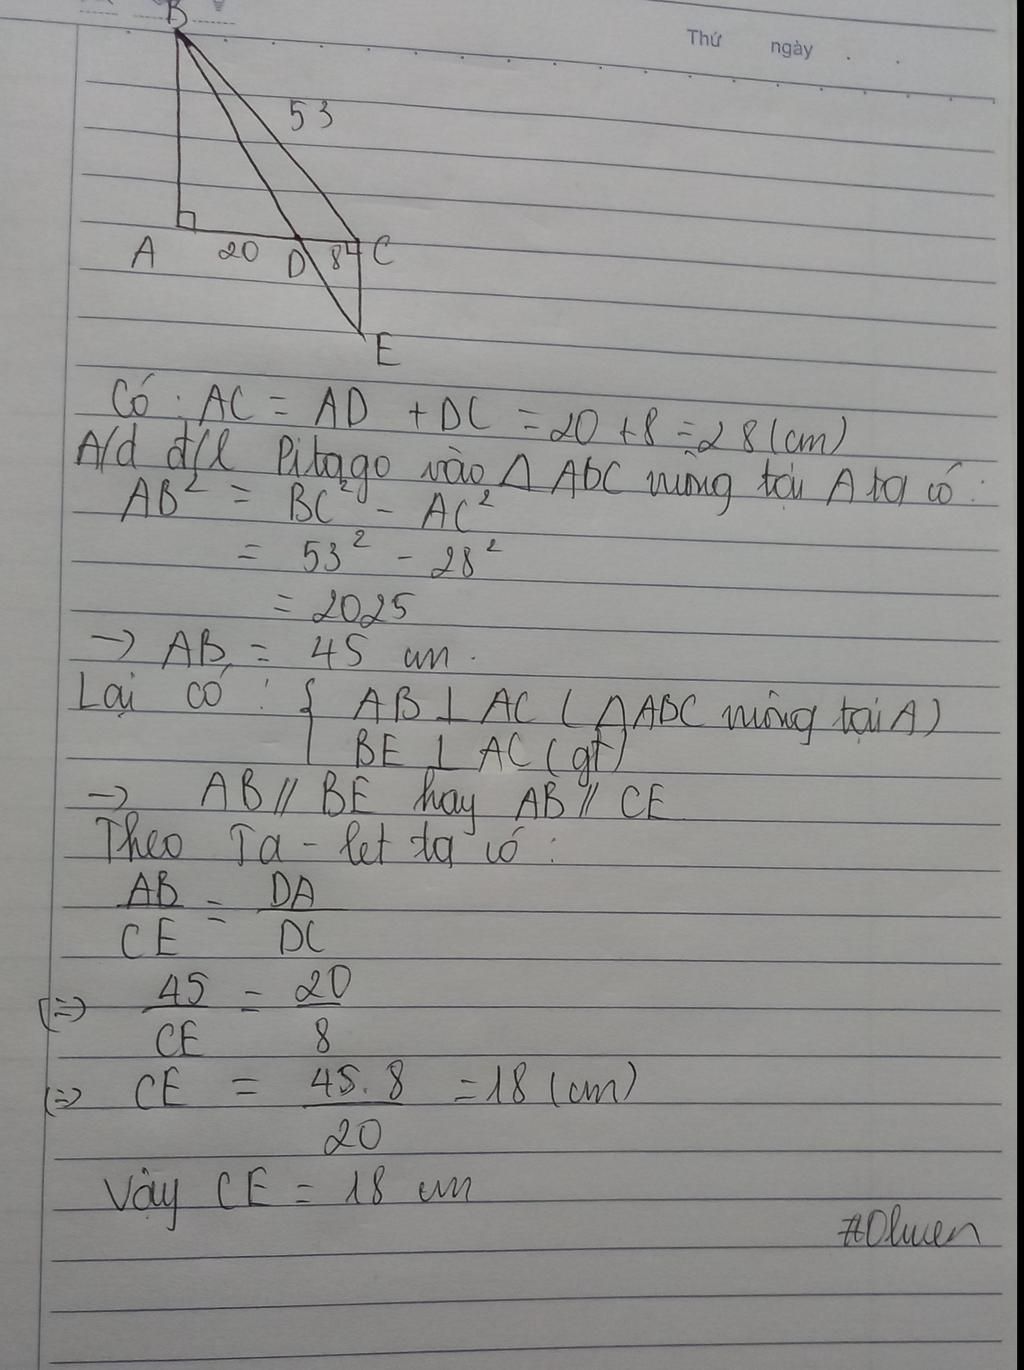 Thứ ngày
B
53
A 20 D 8 C
E
Có : AC = AD + DC = 20 + 8 = 28 (cm)
A/d đ/l Pitago vào Δ ABC vuông tại A ta có :
AB² = BC² - AC²
= 53² - 28²
= 2025
→ AB = 45 cm .
Lại có : { AB ⊥ AC ( Δ ABC vuông tại A )
BE ⊥ AC (gt)
→ AB // BE hay AB // CE
Theo Ta - let ta có :
AB/CE = DA/DC
(=) 45/CE = 20/8
(=) CE = 45.8/20 = 18 (cm)
Vậy CE = 18 cm
#Olwen